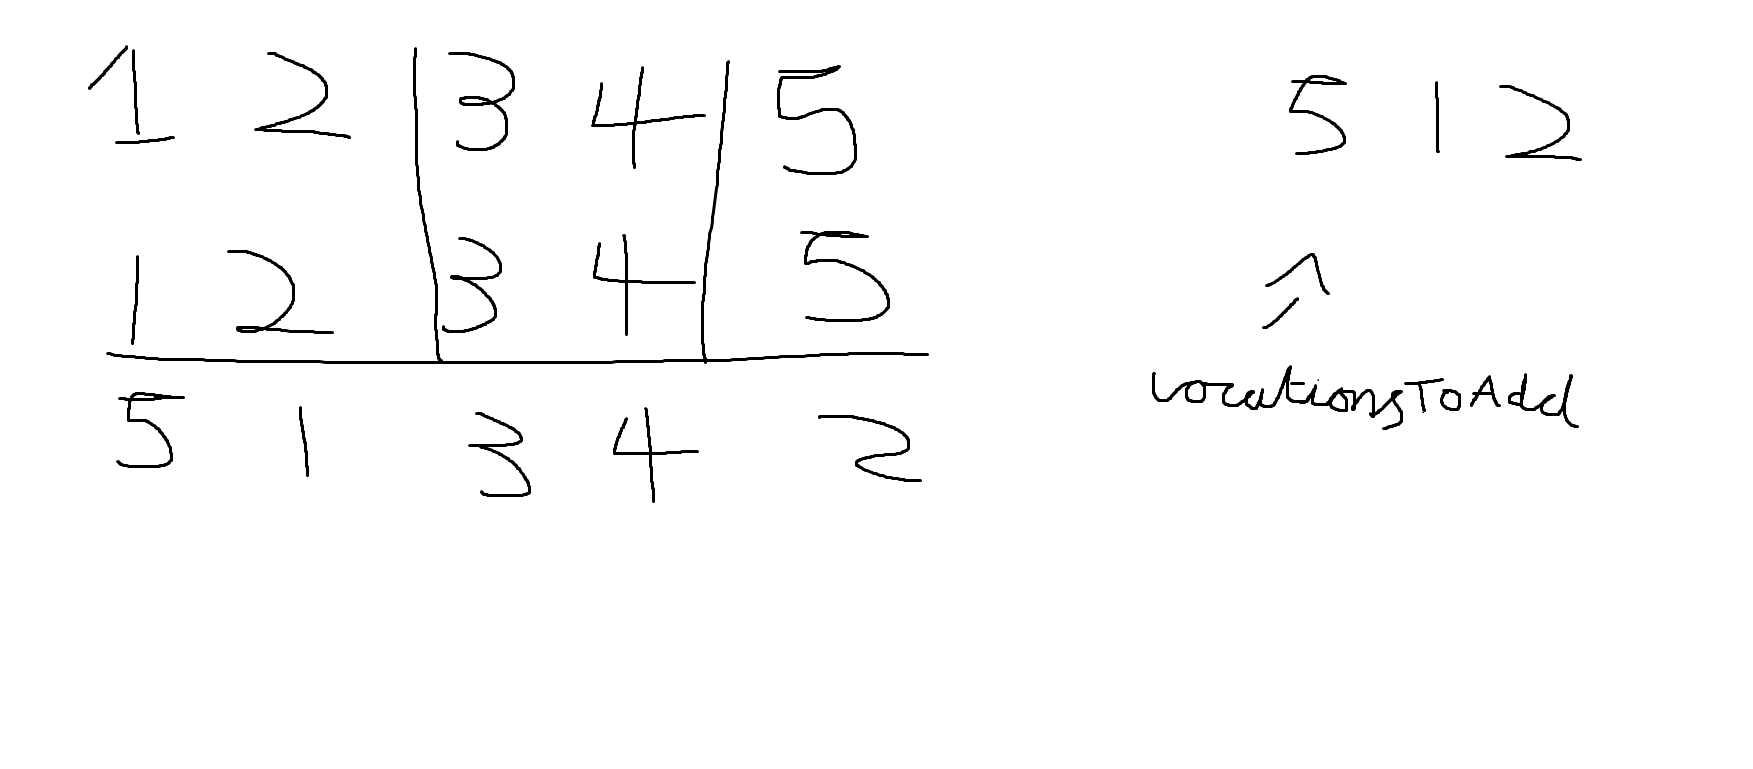 1 2 | 3 4 | 5
1 2 | 3 4 | 5
5 1 3 4 2
5 1 2
locationsToAdd